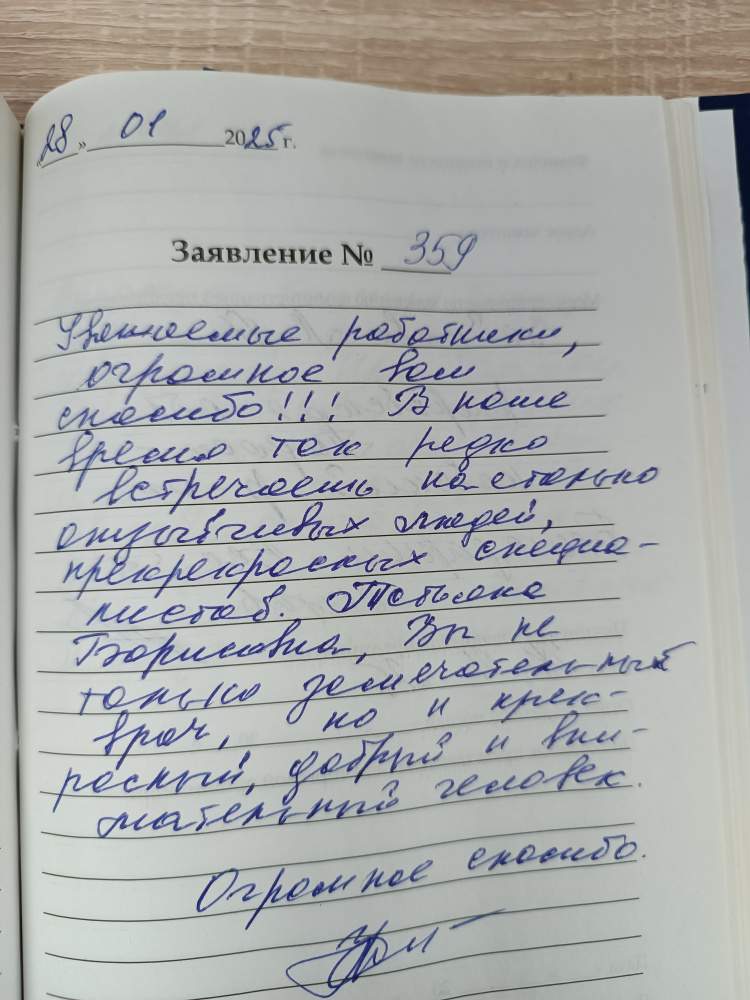 «28» 01 2025 г.
Заявление № 359
Уважаемые работники,
огромное вам
спасибо!!! В наше
время так редко
встречаешь на столько
отзывчивых людей,
прекрекрасных специа-
листов. Татьяна
Борисовна, Вы не
только замечательный
врач, но и прек-
расный, добрый и вни-
мательный человек.
Огромное спасибо.